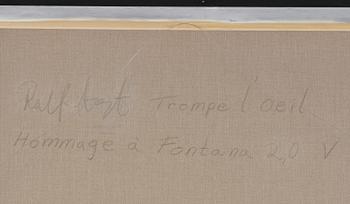 Ralf Trompe l'oeil
Hommage à Fontana 2,0 V